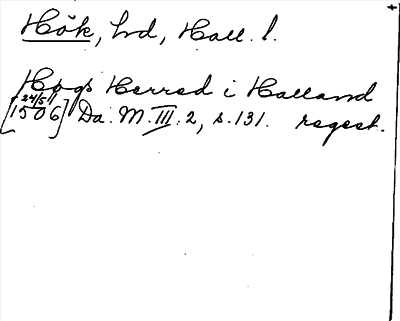 Hök, hd, Hall. l.
Høgs Herred i Halland
24/5
[1506] Da. M. III. 2, s. 131. regest.